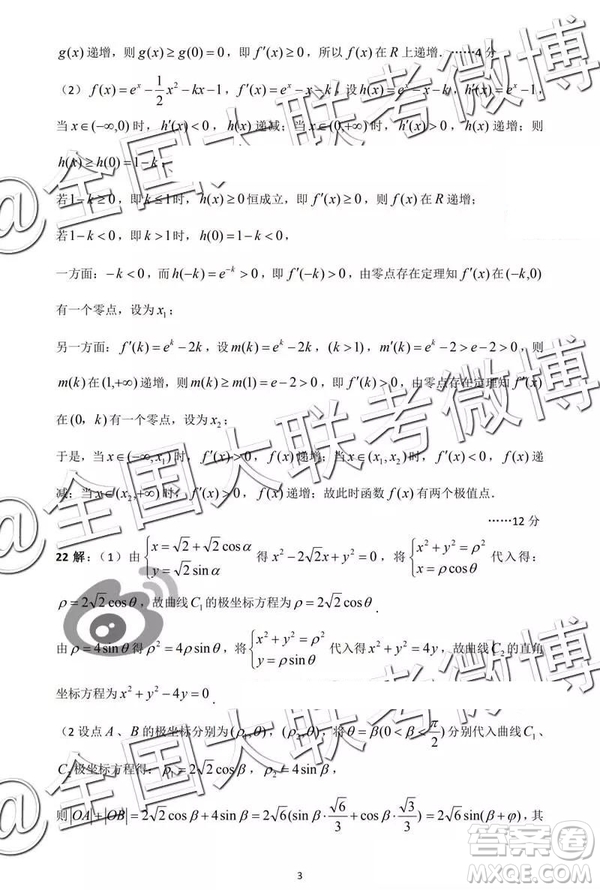 g(x)递增，则g(x)≥g(0)=0，即f′(x)≥0，所以f(x)在R上递增．……4分
（2）f(x)=e^x−1/2x²−kx−1，f′(x)=e^x−x−k，设h(x)=e^x−x−k，h′(x)=e^x−1，
当x∈(−∞,0)时，h′(x)<0，h(x)递减；当x∈(0,+∞)时，h′(x)>0，h(x)递增；则
h(x)≥h(0)=1−k．
若1−k≥0，即k≤1时，h(x)≥0恒成立，即f′(x)≥0，则f(x)在R递增；
若1−k<0，即k>1时，h(0)=1−k<0，
一方面：−k<0，而h(−k)=e^{−k}>0，即f′(−k)>0，由零点存在定理知f′(x)在(−k,0)
有一个零点，设为x₁；
另一方面：f′(k)=e^k−2k，设m(k)=e^k−2k，(k>1)，m′(k)=e^k−2>e−2>0，则
m(k)在(1,+∞)递增，则m(k)≥m(1)=e−2>0，即f′(k)>0，由零点存在定理知f′(x)
在(0，k)有一个零点，设为x₂；
于是，当x∈(−∞,x₁)时，f′(x)>0，f(x)递增；当x∈(x₁,x₂)时，f′(x)<0，f(x)递
减；当x∈(x₂,+∞)时，f′(x)>0，f(x)递增；故此时函数f(x)有两个极值点．
……12分
22解：（1）由{x=√2+√2cosα y=√2sinα 得x²−2√2x+y²=0，将{x²+y²=ρ² x=ρcosθ 代入得：
ρ=2√2cosθ，故曲线C₁的极坐标方程为ρ=2√2cosθ．
由ρ=4sinθ得ρ²=4ρsinθ，将{x²+y²=ρ² y=ρsinθ 代入得x²+y²=4y，故曲线C₂的直角
坐标方程为x²+y²−4y=0．
（2设点A、B的极坐标分别为(ρ₁,θ)，(ρ₂,θ)，将θ=β(0<β<π/2)分别代入曲线C₁、
C₂极坐标方程得：ρ₁=2√2cosβ，ρ₂=4sinβ，
则|OA|+|OB|=2√2cosβ+4sinβ=2√6(sinβ·√6/3+cosβ·√3/3)=2√6sin(β+φ)，其
3
@全国大联考微博
@全国大联考微博
@全国大联考微博
答案圈
MXQE.COM